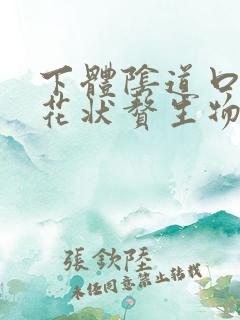 下體陰道口
花狀贅生物
張欽陞
未經同意禁止轉載